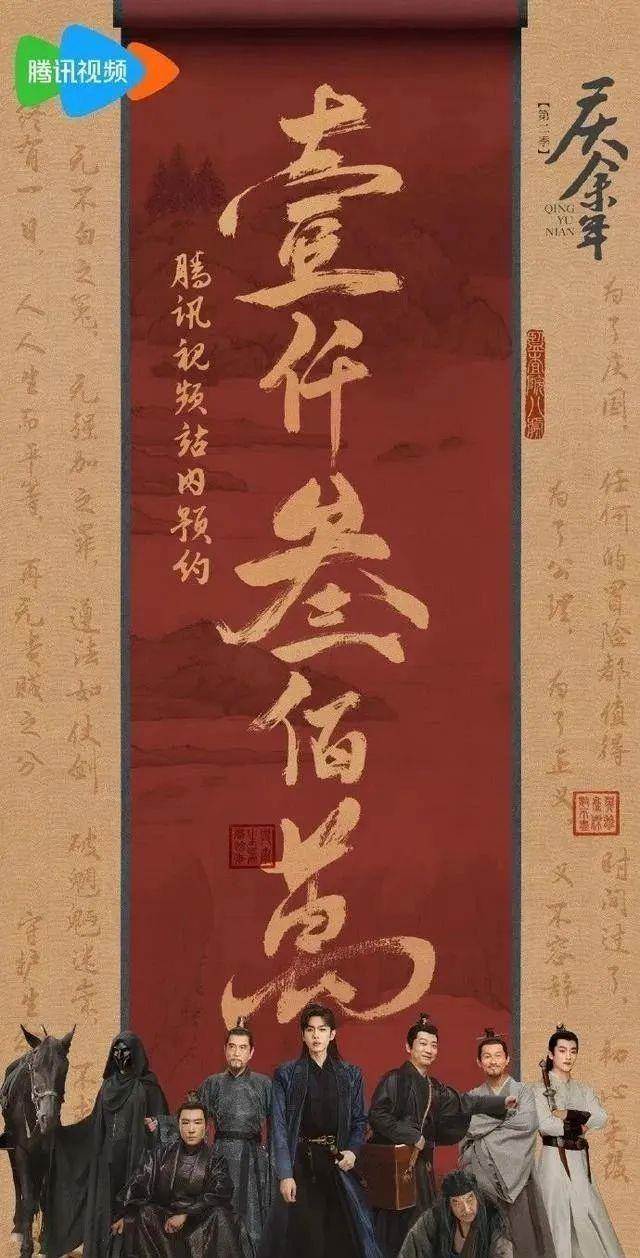 腾讯视频
庆余年
【第二季】
QING
YU
NIAN
壹仟叁佰萬
腾讯视频站内预约
为了庆国，任何的冒险都值得
为了公理，为了正义，义不容辞
时间过了，初心未改
无不白之冤，无强加之罪，遵法如仗剑，破魍魉迷崇，不
终有一日，人人生而平等，再无贵贱之分
守护生